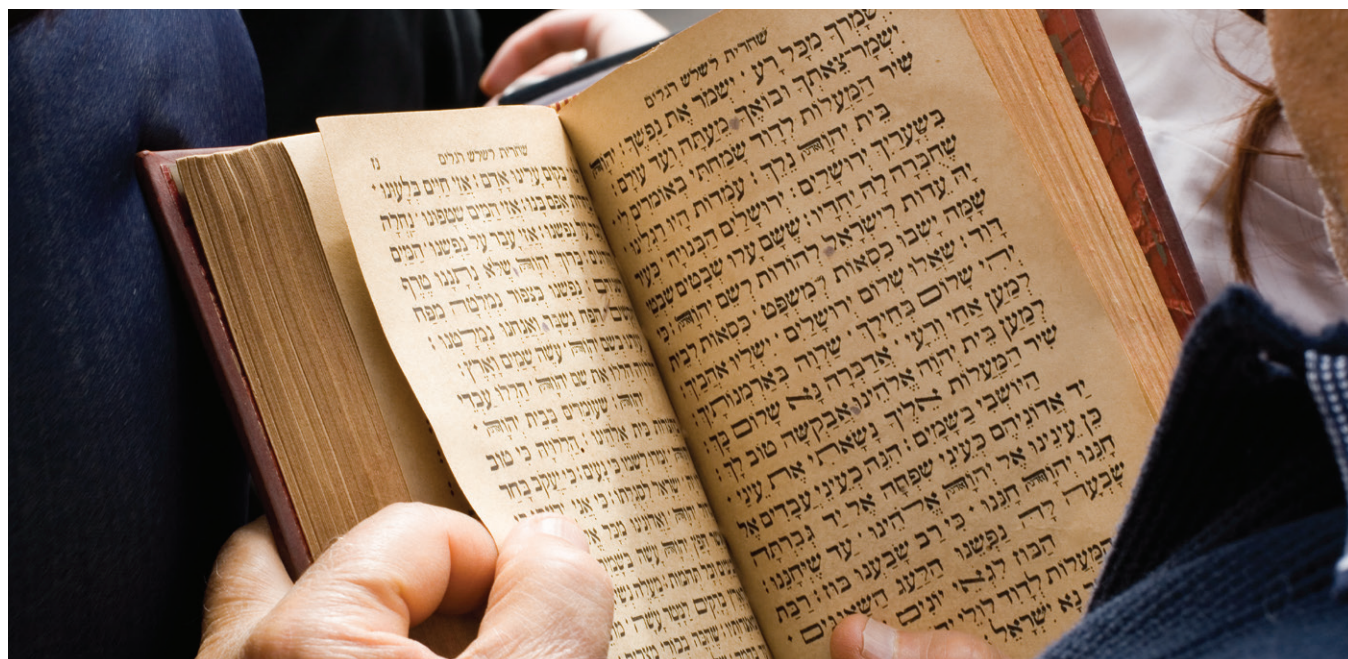 שחרית לשלש רגלים
יִשְׁמָרְךָ מִכָּל רָע · יִשְׁמֹר אֶת נַפְשֶׁךָ : יְהֹוָה
יִשְׁמָר־צֵאתְךָ וּבוֹאֶךָ · מֵעַתָּה וְעַד עוֹלָם :
שִׁיר הַמַּעֲלוֹת לְדָוִד שָׂמַחְתִּי בְּאוֹמְרִים לִי
בֵּית יְהֹוָה נֵלֵךְ : עֹמְדוֹת הָיוּ רַגְלֵינוּ ·
בִּשְׁעָרַיִךְ יְרוּשָׁלָיִם : יְרוּשָׁלַיִם הַבְּנוּיָה כְּעִיר
שֶׁחֻבְּרָה לָּהּ יַחְדָּיו : שֶׁשָּׁם עָלוּ שְׁבָטִים שִׁבְטֵי
יָהּ עֵדוּת לְיִשְׂרָאֵל · לְהוֹדוֹת לְשֵׁם יְהֹוָה : כִּי
שָׁמָּה יָשְׁבוּ כִסְאוֹת לְמִשְׁפָּט · כִּסְאוֹת לְבֵית
דָּוִד : שַׁאֲלוּ שְׁלוֹם יְרוּשָׁלָיִם · יִשְׁלָיוּ אֹהֲבָיִךְ :
יְהִי שָׁלוֹם בְּחֵילֵךְ שַׁלְוָה בְּאַרְמְנוֹתָיִךְ :
לְמַעַן אַחַי וְרֵעָי · אֲדַבְּרָה נָּא שָׁלוֹם בָּךְ :
לְמַעַן בֵּית יְהֹוָה אֱלֹהֵינוּ אֲבַקְשָׁה טוֹב לָךְ :
שִׁיר הַמַּעֲלוֹת אֵלֶיךָ נָשָׂאתִי אֶת עֵינַי ·
הַיּוֹשְׁבִי בַּשָּׁמָיִם : הִנֵּה כְעֵינֵי עֲבָדִים אֶל
יַד אֲדוֹנֵיהֶם כְּעֵינֵי שִׁפְחָה אֶל יַד גְּבִרְתָּהּ
כֵּן עֵינֵינוּ אֶל יְהֹוָה אֱלֹהֵינוּ · עַד שֶׁיְּחָנֵּנוּ :
חָנֵּנוּ יְהֹוָה חָנֵּנוּ · כִּי רַב שָׂבַעְנוּ בוּז : רַבַּת
שָׂבְעָה לָּהּ נַפְשֵׁנוּ הַלַּעַג הַשַּׁאֲנַנִּים ·
הַבּוּז לִגְאֵי יוֹנִים
הַמַּעֲלוֹת לְדָוִד לוּלֵי
נָא יִשְׂרָאֵל
שחרית לשלש רגלים נז
בְּקוּם עָלֵינוּ אָדָם : אֲזַי חַיִּים בְּלָעוּנוּ ·
אַפָּם בָּנוּ : אֲזַי הַמַּיִם שְׁטָפוּנוּ · נַחְלָה
נַפְשֵׁנוּ : אֲזַי עָבַר עַל נַפְשֵׁנוּ הַמַּיִם
בָּרוּךְ יְהֹוָה שֶׁלֹּא נְתָנָנוּ טֶרֶף
נַפְשֵׁנוּ כְּצִפּוֹר נִמְלְטָה מִפַּח
הַפַּח נִשְׁבָּר וַאֲנַחְנוּ נִמְלָטְנוּ :
בְּשֵׁם יְהֹוָה עֹשֵׂה שָׁמַיִם וָאָרֶץ :
הַלְלוּ אֶת שֵׁם יְהֹוָה הַלְלוּ עַבְדֵי
יְהֹוָה : שֶׁעוֹמְדִים בְּבֵית יְהֹוָה ·
בֵּית אֱלֹהֵינוּ : הַלְלוּיָהּ כִּי טוֹב
לִשְׁמוֹ כִּי נָעִים : כִּי יַעֲקֹב בָּחַר
יִשְׂרָאֵל לִסְגֻלָּתוֹ : כִּי אֲנִי